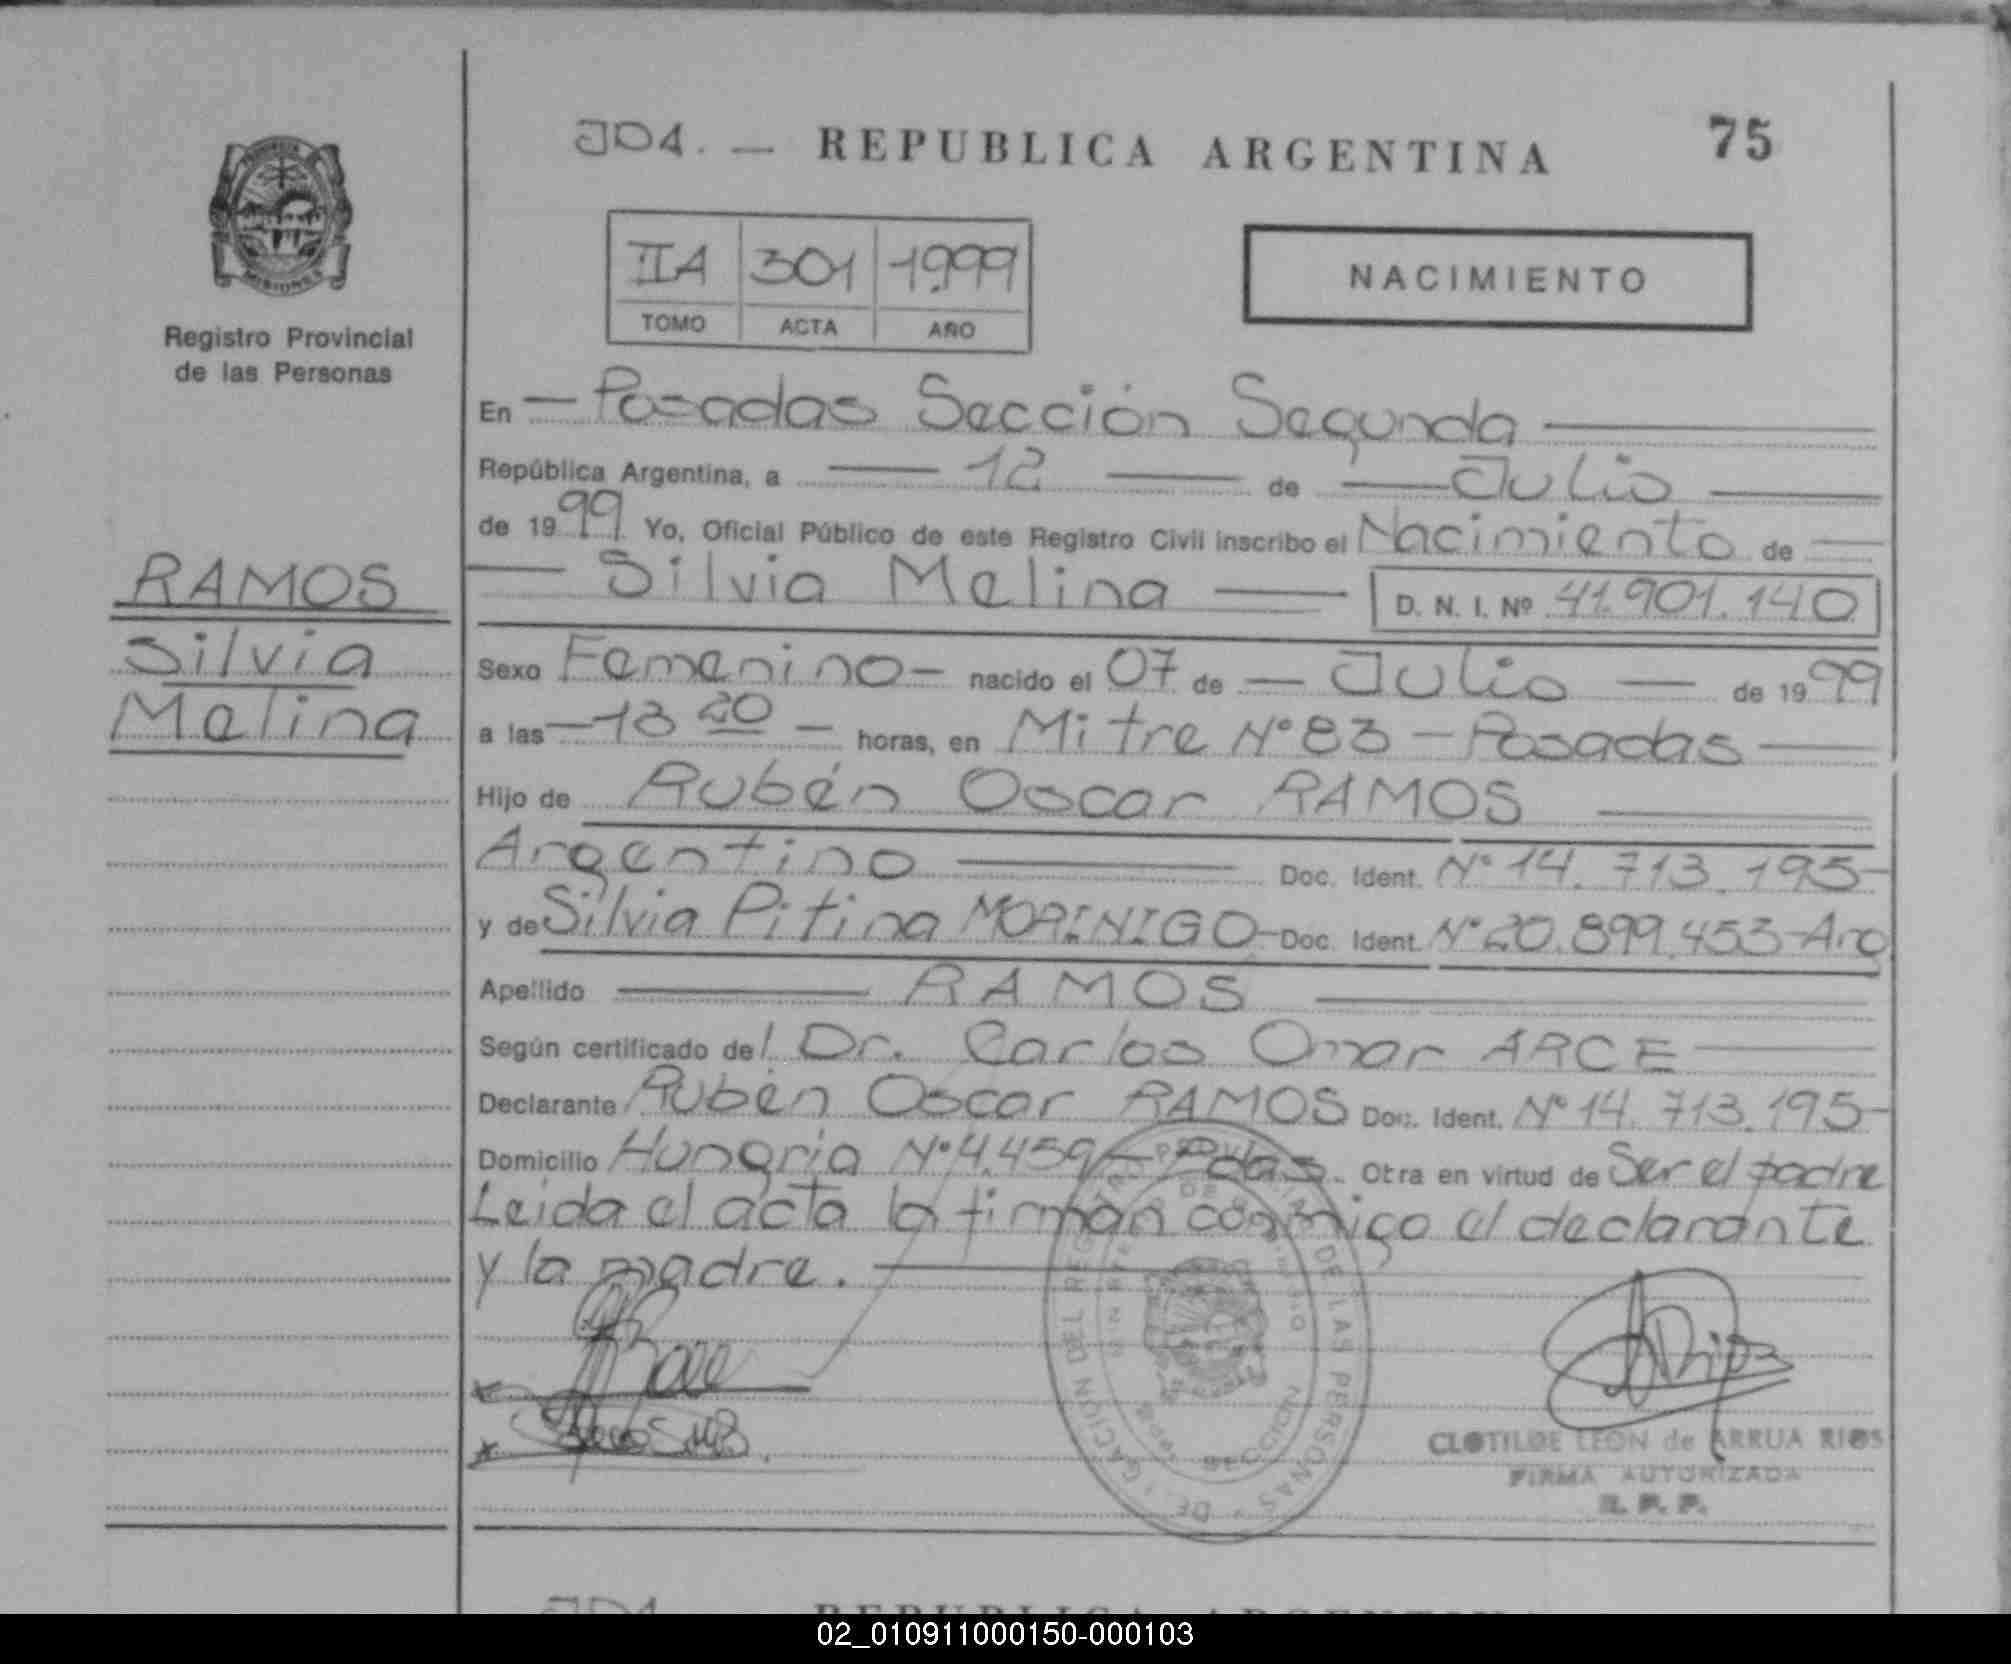 JD1. — REPUBLICA ARGENTINA 75
PROVINCIA DE
MISIONES
Registro Provincial
de las Personas
IIA 301 1999
TOMO ACTA AÑO
NACIMIENTO
En — Posadas Sección Segunda —
República Argentina, a — 12 — de — Julio —
de 1999 Yo, Oficial Público de este Registro Civil inscribo el Nacimiento de —
— Silvia Melina — D. N. I. Nº 41.901.140
RAMOS
Silvia
Melina
Sexo Femenino — nacido el 07 de — Julio — de 1999
a las — 13 20 — horas, en Mitre Nº 83 — Posadas —
Hijo de Rubén Oscar RAMOS —
Argentino — Doc. Ident. Nº 14.713.195 —
y de Silvia Pitina MORINIGO — Doc. Ident. Nº 20.899.453 - Arg
Apellido — RAMOS —
Según certificado del Dr. Carlos Omar ARCE —
Declarante Rubén Oscar RAMOS Doc. Ident. Nº 14.713.195 —
Domicilio Hungria Nº 4.459 — Pdas. Otra en virtud de Ser el padre
Leida el acta la firman conmigo el declarante
y la madre. —
CLOTILDE LEON de ARRUA RIOS
FIRMA AUTORIZADA
R. P. P.
DE LAS PERSONAS
SECCION
JD1. REPUBLICA ARGENTINA
02_010911000150-000103